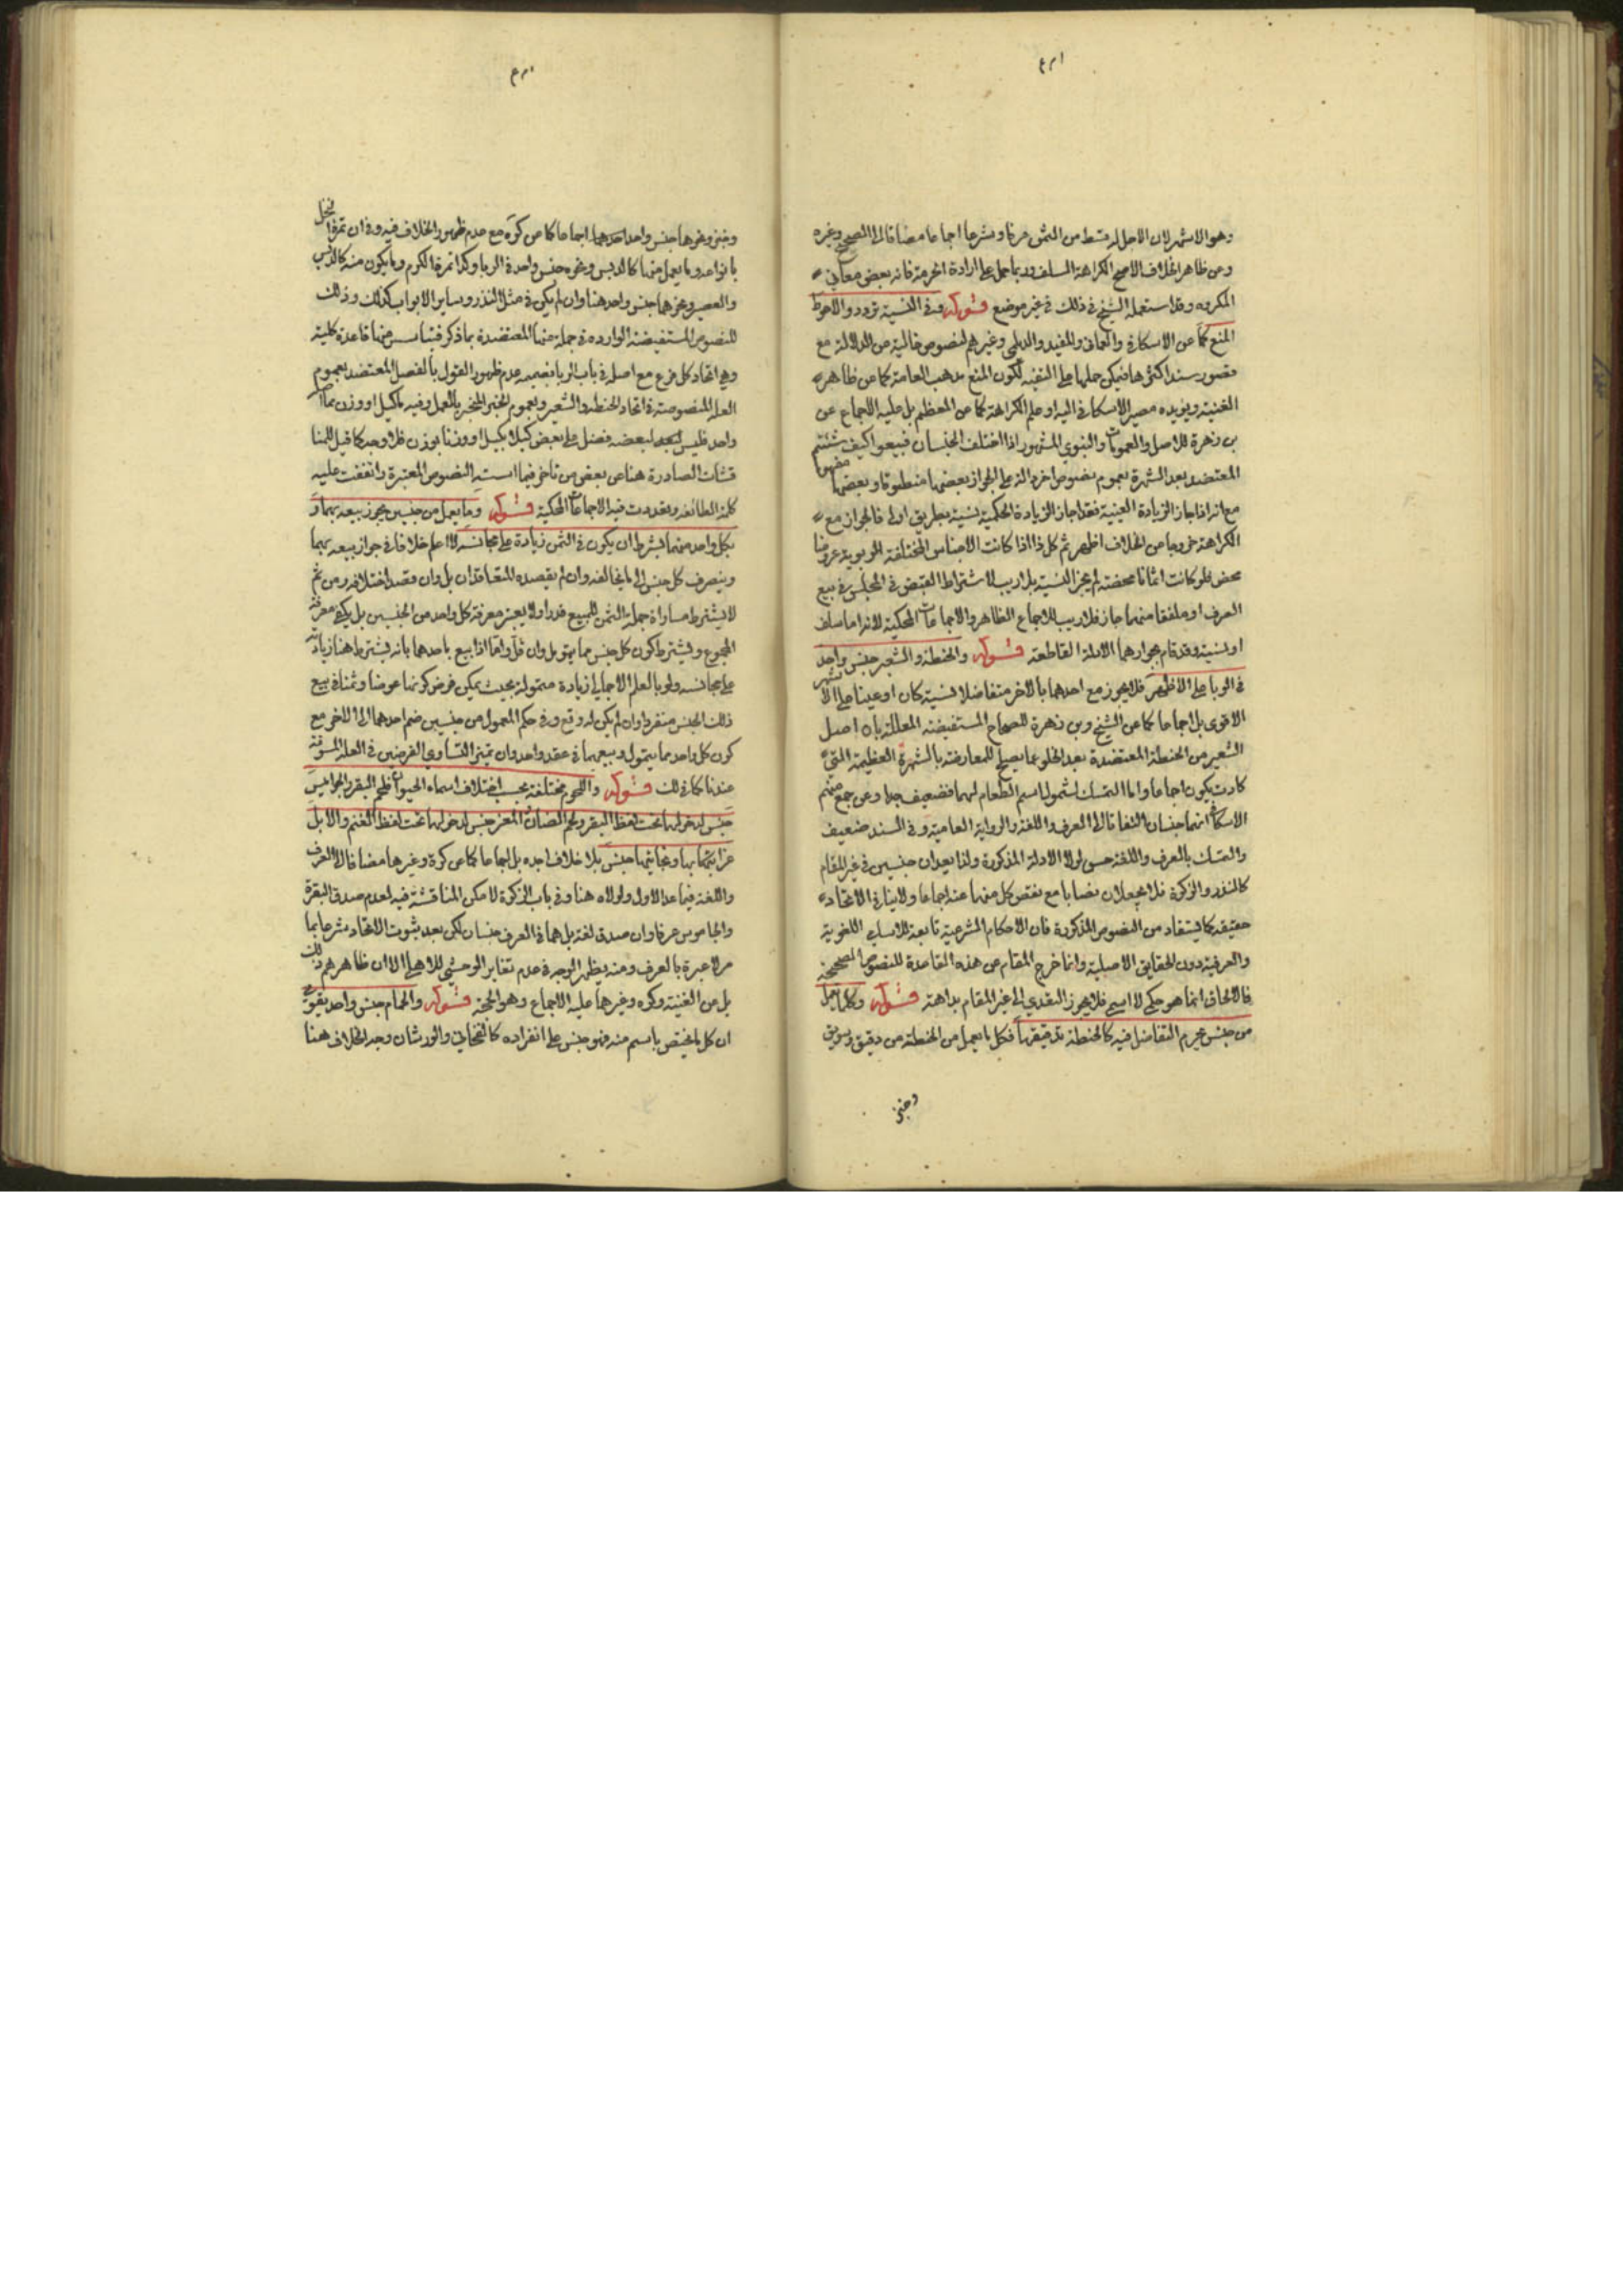 وهو الاشهر لان الاجل له قسط من الثمن عرفا وشرعا اجماعا مضافا الى الصحيح وغيره
وعن ظاهر الخلاف الاصح الكراهة السلف وربما حمل على ارادة الحرمة فانه بعض معاني
المكروه وقد استعمله الشيخ في ذلك في غير موضع قوله وفي النسية تردد والاحوط
المنع كما عن الاسكافي والعماني والمفيد والديلمي وغيرهم لنصوص خالية من الدلالة مع
قصور سند اكثرها فيمكن حملها على التقية لكون المنع مذهب العامة كما عن ظاهر
الغنية ويؤيده مصير الاسكافي اليه او على الكراهة كما عن المعظم بل عليه الاجماع عن
بن زهرة للاصل والعمومات والنبوي المشهور اذا اختلف الجنسان فبيعوا كيف شئتم
المعتضد بعد الشهرة بعموم نصوص اخر دالة على الجواز بعضها منطوقا وبعضها مفهوما
مع انه اذا جاز الزيادة العينية فقد اجاز الزيادة الحكمية نسية بطريق اولى فالجواز مع
الكراهة خروجا من الخلاف اظهر ثم كل ذا اذا كانت الاجناس المختلفة الربوية عروضا
محض فلو كانت اثمانا محضة لم يجز النسية بلا ريب لاشتراط القبض في المجلس في بيع
الصرف او ملفقا منهما جاز فلا ريب للاجماع الظاهر والاجماعات المحكية لانه اما سلف
او نسية وقد قام بجوازهما الادلة القاطعة قوله والحنطة والشعير جنس واحد
في الربا على الاظهر فلا يجوز مع احدهما بالاخر متفاضلا نسية كان او عينا على الاشهر
الاقوى بل اجماعا كما عن الشيخ وبن زهرة للصحاح المستفيضة المعللة بان اصل
الشعير من الحنطة المعتضدة بعد الخلو عما يصلح للمعارضة بالشهرة العظيمة التي
كادت يكون اجماعا واما التمسك لشمول اسم الطعام لهما فضعيف جدا وعن جمع منهم
الاسكافي انهما جنسان التفاتا الى العرف واللغة والرواية العامية وفي السند ضعيف
والتمسك بالعرف واللغة حسن لولا الادلة المذكورة ولذا يعدان جنسين في غير المقام
كالنذر والزكوة فلا يجعلان نصابا مع نقص كل منهما عنه اجماعا ولا ينافي الاتحاد
حقيقة كما يستفاد من النصوص المذكورة فان الاحكام الشرعية تابعة للاسامي اللغوية
والعرفية دون الحقايق الاصلية وانما خرج المقام عن هذه القاعدة للنصوص الصحيحة
فالالحاق انما هو حكمي لا اسمي فلا يجوز التعدي الى غير المقام بداهة قوله وكلما يعمل
من جنس يحرم التفاضل فيه كالحنطة بدقيقها فكل ما يعمل من الحنطة من دقيق وسويق
وخبز
وخبز ونحوها جنس واحد اجماعا كما عن كره مع عدم ظهور الخلاف فيه وفي ان تمرة النخل
بانواعه وما يعمل منها كالدبس ونحوه جنس واحد في الربا وكذا ثمرة الكرم وما يكون منه كالدبس
والعصير ونحوهما جنس واحد هنا وان لم يكن في مثل النذر وساير الابواب كذلك وذلك
للنصوص المستفيضة الواردة في جملة منها المعتضدة بما ذكر فتاسس منها قاعدة كلية
وهي اتحاد كل فرع مع اصله في باب الربا بضميمة عدم ظهور القول بالفصل المعتضد بعموم
العلة المنصوصة في اتحاد الحنطة والشعير وبعموم الخبر المنجبر بالعمل وفيه ما كيل او وزن مما اصله
واحد فليس لبعضه فضل على بعض كيلا بكيل او وزنا بوزن فلا وجه كما قيل للمنا
قشات الصادرة هنا عن بعض من تاخر فيما اسسته النصوص المعتبرة واتفقت عليه
كلمة الطائفة وتعددت فيه الاجماعات المحكية قوله وما يعمل من جنسين يجوز بيعه بهما و
بكل واحد منهما بشرط ان يكون في الثمن زيادة على مجانسه لا اعلم خلافا في جواز بيعه بهما
وينصرف كل جنس الى ما يخالفه وان لم يقصده المتعاقدان بل وان قصد اختلافه ومن ثم
لا يشترط مساواة جملة الثمن للمبيع قدرا ولا يعتبر معرفة كل واحد من الجنسين بل يكفي معرفة
المجموع ويشترط كون كل جنس مما يتمول وان قل واما اذا بيع باحدهما بانه يشترط هنا زيادته
على مجانسه ولو بالعلم الاجمالي زيادة متمولة بحيث يمكن فرض كونها عوضا وثمنا في بيع
ذلك الجنس منفردا وان لم يكن له وقع وفي حكم المعمول من جنسين ضم احدهما الى الاخر مع
كون كل واحد مما يتمول وبيعهما في عقد واحد وان تميز التساوي الفرضين في العلة المسوغة
عندنا كما في لك قوله واللحوم مختلفة بحسب اختلاف اسماء الحيوان فلحم البقر والجواميس
جنس لدخولهما تحت لفظ البقر ولحم الضان والمعز جنس لدخولهما تحت لفظ الغنم والابل
عرابتها وبخاتيها جنس بلا خلاف اجده بل اجماعا كما عن كرة وغيرها مضافا الى العرف
واللغة فيما عدا الاول ولولاه هنا وفي باب الزكوة لامكن المناقشة فيه لعدم صدق البقرة
والجاموس عرفا وان صدق لغة بل هما في العرف جنسان لكن بعد ثبوت الاتحاد شرعا بما
مر لا عبرة بالعرف ومنه يظهر الوجه في عدم تغاير الوحشي للاهلي الا ان ظاهرهم ذلك
بل عن الغنية وكره وغيرهما عليه الاجماع وهو الحجة قوله والحمام جنس واحد يقوى في
ان كل ما يختص باسم منه فهو جنس على انفراده كالفخاتي والورشان وجه الخلاف هنا